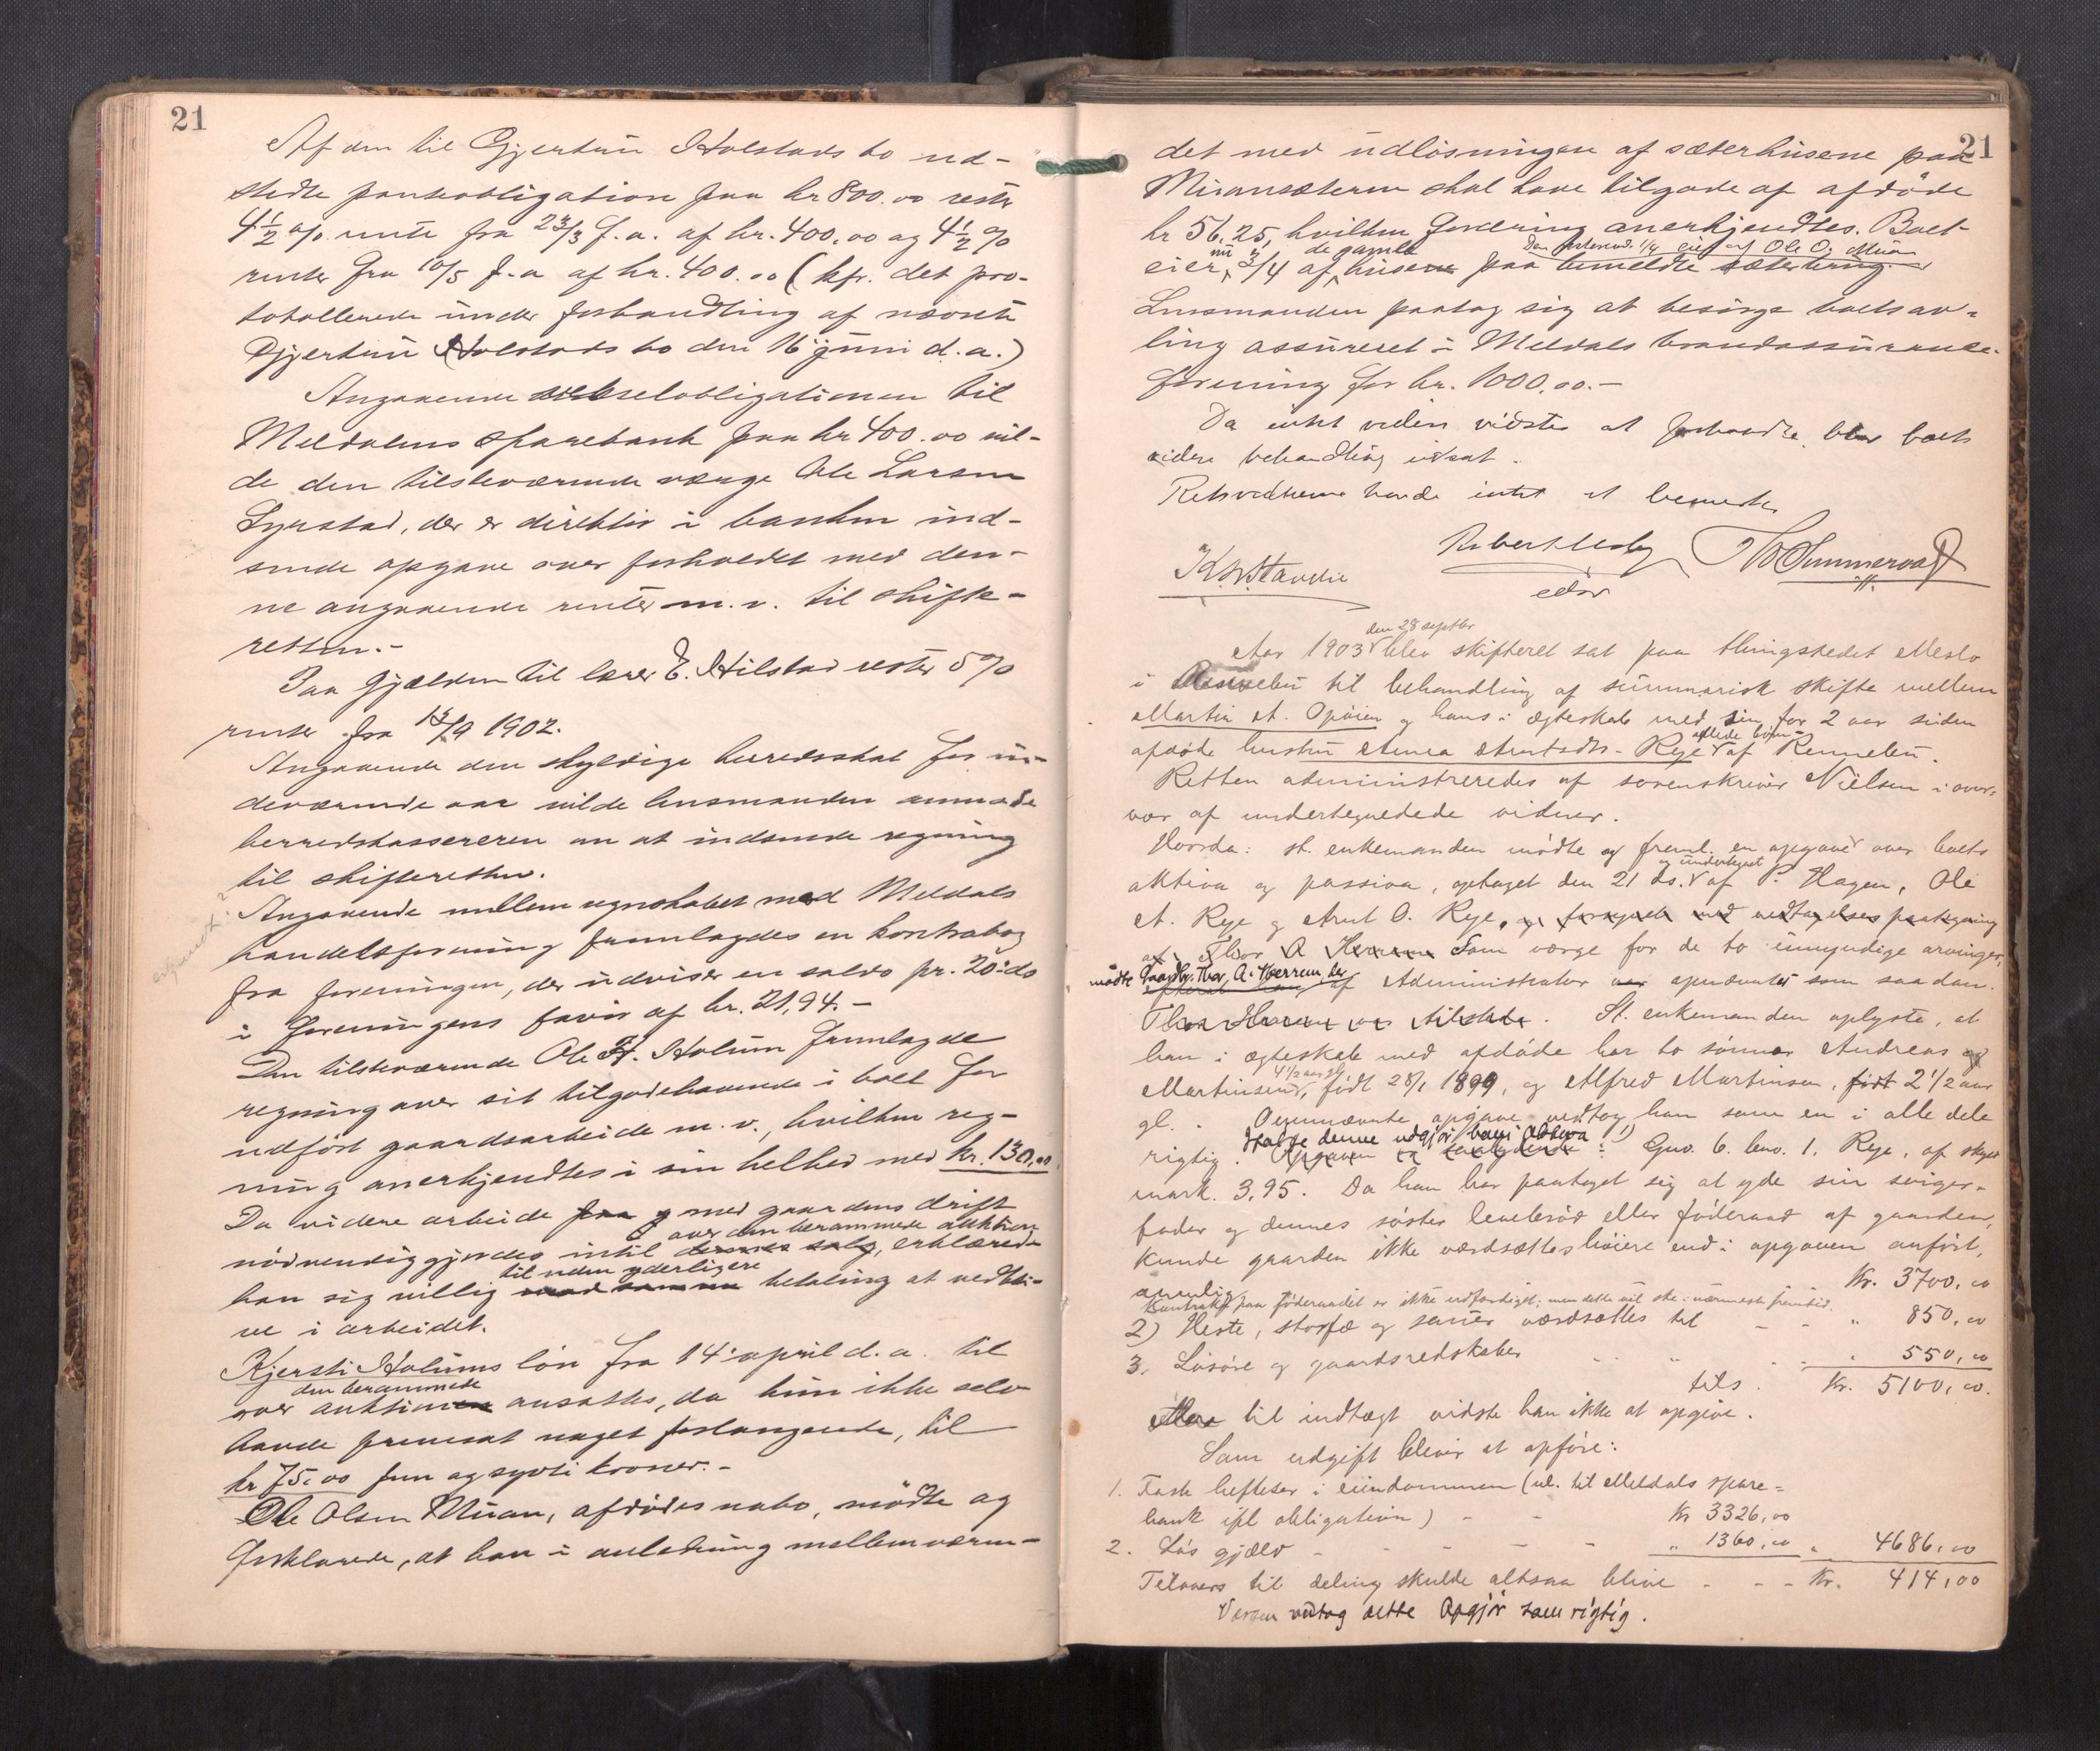 21
Af den til Gjertrud Holstads bo ud-
stedte panteobligation paa kr 800.00 rester
4½ % rente fra 23/3 f.a. af kr. 400.00 og 4½ %
renter fra 10/5 f.a. af kr. 400.00 (kfr. det pro-
tokollerede under forhandling af nævnte
Gjertrud Holstads bo den 16 juni d.a.)
Angaaende vekselobligationen til
Meldalens Sparebank paa kr 400.00 vil-
de den tilstedeværende værge Ole Larsen
Syrstad, der er direktør i banken ind-
sende opgave over forholdet med den-
ne angaaende renter m.v. til skifte-
retten.-
Paa gjælden til lærer E. Hilstad rester 5 %
renter fra 14/9 1902.
Angaaende den skyldige herredsskat for in-
deværende aar vilde lensmanden anmode
herredskassereren om at indsende regning
til skifteretten.
Angaaende mellemregnskabet med Meldals
handelsforening fremlagdes en kontrabog
fra foreningen, der udviser en saldo pr. 20: ds
i foreningens favør af kr. 21,94.-
Den tilstedeværende Ole Holum fremlagde
regning over sit tilgodehavende i boet for
udført gaardsarbeide m.v., hvilken reg-
ning anerkjendtes i sin helhed med kr. 130,00.
Da videre arbeide paa g med gaardens drift
over den berammede auktion
nødvendiggjordes intil dennes salg, erklærede
til uden yderligere
han sig villig mod samme betaling at vedbli-
ve i arbeidet.
Kjersti Holums løn fra 14: april d.a. til
den berammede
over auktionen ansattes, da hun ikke selv
havde fremsat noget forlangende, til
kr 75.00 fem og sytti kroner.-
Ole Olsen Muan, afdødes nabo, mødte og
forklarede, at han i anledning mellemværen-
21
det med udløsningen af sæterhusene paa
Muansæteren skal have tilgode af afdøde
kr 56.25, hvilken fordring anerkjendtes. Boet
nu de gamle Den resterend. 1/4 eies af Ole O. Muan
eier 3/4 af husene paa bemeldte sæterbrug.
Lensmanden paatog sig at besørge boets av-
ling assureret i Meldals brandassurance-
forening for kr. 1000.00.-
Da intet videre vidstes at forhandle, blev boets
videre behandling udsat.
Retsvidnerne havde intet at bemerke
den 28 septbr
Aar 1903 blev skifteret sat paa thingstedet Meslo
i Rennebu til behandling af summarisk skifte mellem
Martin A. Opøien og hans i ægteskab med sin for 2 aar siden
avlede børn
afdøde hustru Anna Arntsdtr. Rye af Rennebu.
Retten administreredes af sorenskriver Nielsen i over-
vær af undertegnedede vidner.
Hvorda: st. enkemanden mødte og freml. en opgave over boets
og undertegnet
aktiva og passiva, optaget den 21 ds. af P. Hagen, Ole
A. Rye og Arnt O. Rye, og forsynet med vedtagelsespaategning
af Thor A Herrem Som værge for de to umyndige arvinger,
mødte Gaardbr. Thor A. Herrem, der af Administrator var opnævntes som saadan.
Thor Herrem var tilstede. St. enkemanden oplyste, at
han i ægteskab med afdøde har to sønner Andreas og
4½ aar gl
Martinsen, født 28/1 1899, og Alfred Martinsen, født 2½ aar
gl. Ovennævnte opgave vedtog han som en i alle dele
Ifølge denne udgjør boets Aktiva 1)
rigtig. Opgaven er saalydende: Gno. 6. bno. 1. Rye, af skyld
mark. 3.95. Da han har paataget sig at yde sin sviger-
fader og dennes søster levebrød eller føderaad af gaarden,
kunde gaarden ikke værdsættes høiere end i opgaven anført,
nemlig Kr. 3700,00
Kontrakt paa føderaadet er ikke udfærdiget; men dette vil ske i nærmeste fremtid.
2) Heste, storfæ og sauer værdsættes til - - " 850,00
3. Løsøre og gaardsredskaber " 550,00
tils. Kr. 5100,00.
Mere til indtægt vidste han ikke at opgive.
Som udgift blever at opføre:
1. Faste heftelser i eiendommen (nl. til Meldals spare-
bank ifl obligation) - - Kr 3326,00
2. Løs gjæld - - - - - " 1360,00 " 4686,00
Tilovers til deling skulde altsaa blive - - - Kr. 414,00
Værgen vedtog dette Opgjør som rigtig.